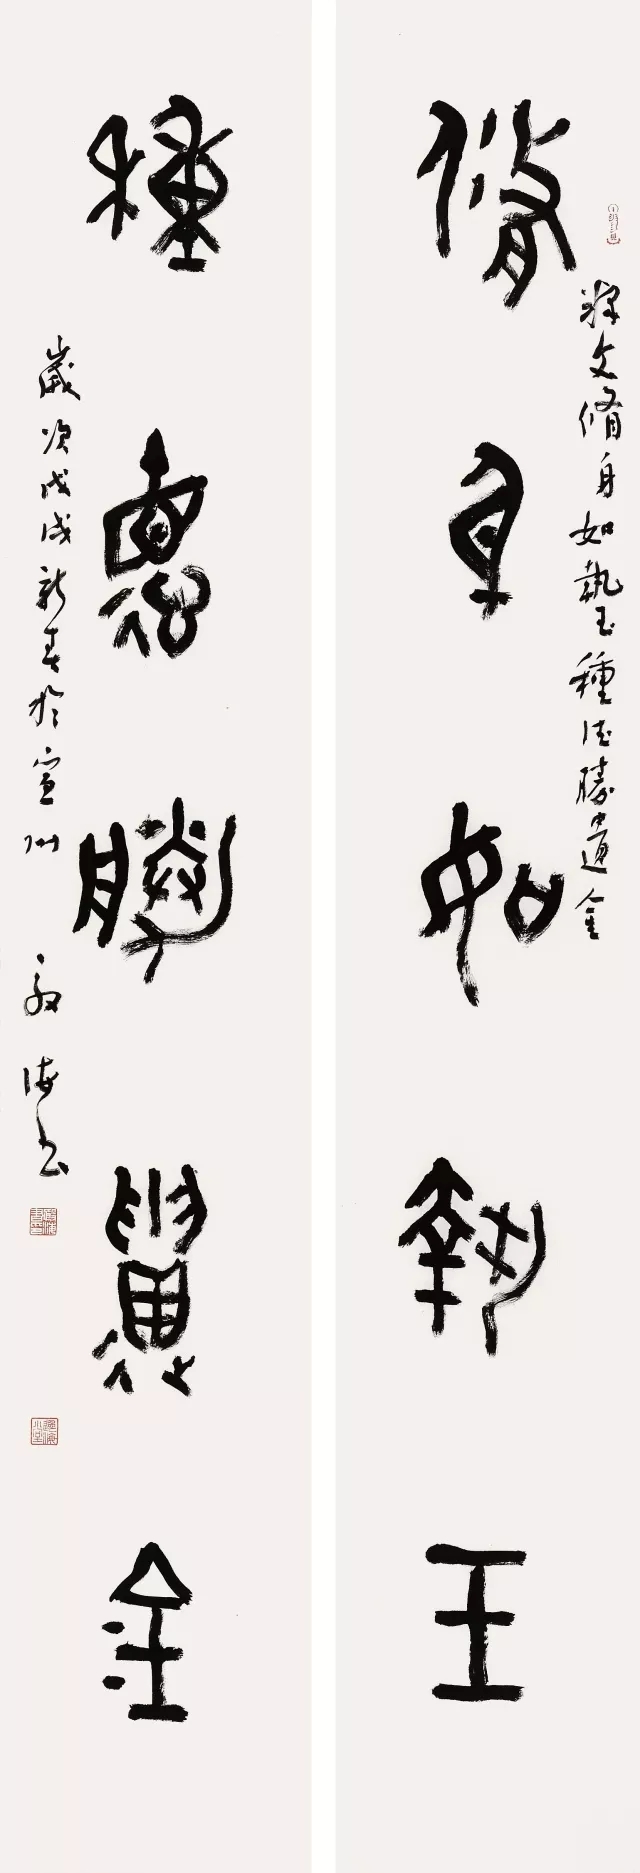 脩身如執玉
釋文脩身如執玉種德勝遺金
種德勝遺金
歲次戊戌新春於宣州
海書